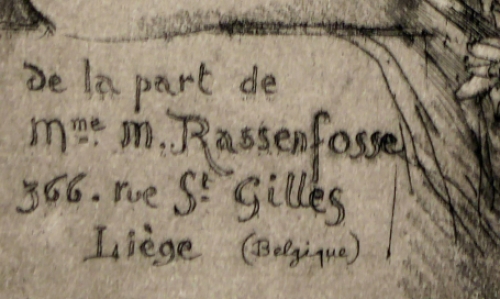 de la part de
Mme M. Rassenfosse
366. rue St Gilles
Liège (Belgique)